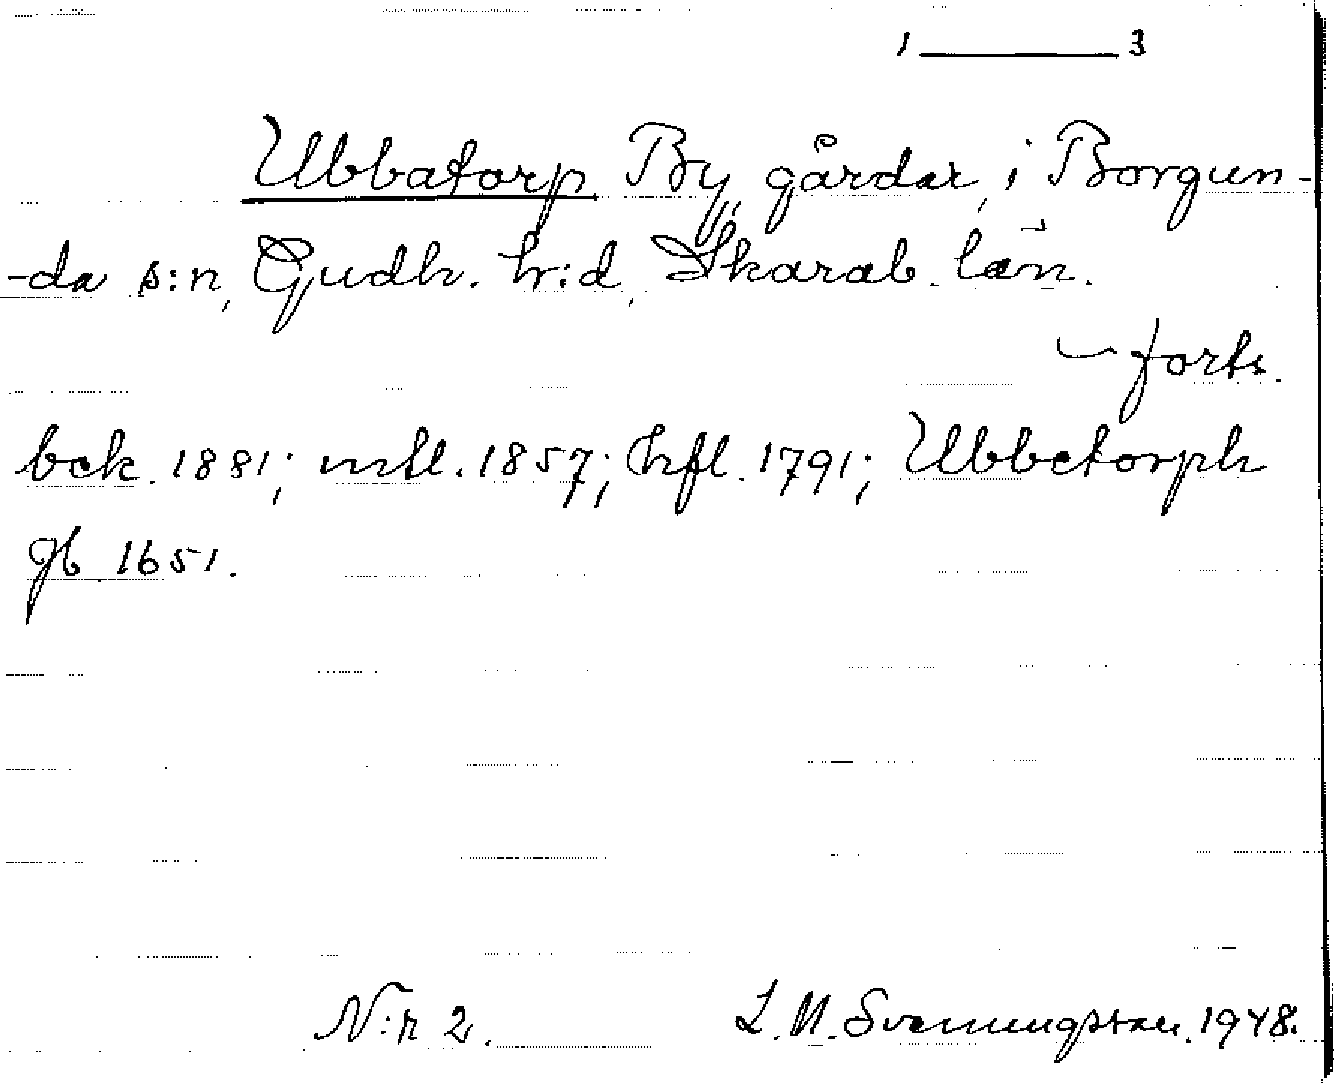 1 ——— 3
Ubbatorp By, gårdar, i Borgun-
-da s:n, Gudh. h:d, Skarab. län.
~ forts.
bek. 1881; mtl. 1857; hfl. 1791; Ubbetorph
gb 1651.
N:r 2. L. M. Svenungsson. 1948.